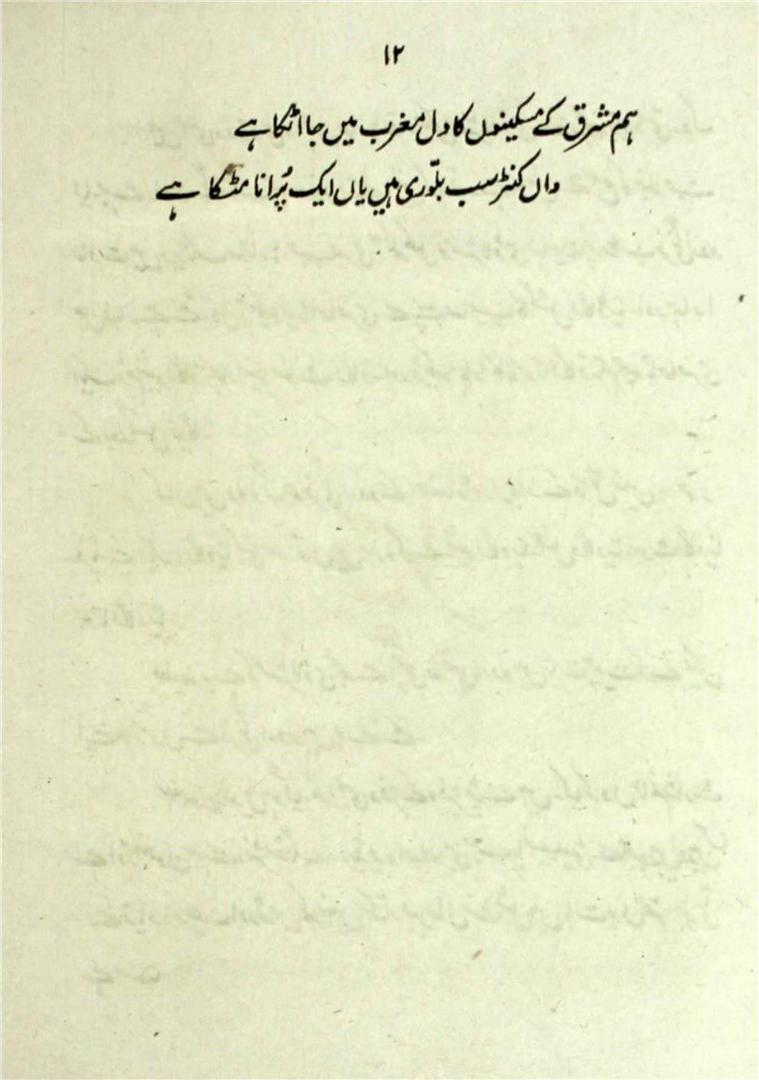 ۱۲
ہم مشرق کے مسکینوں کا دل مغرب میں جا اٹکا ہے
واں کنٹر سب بلّوری ہیں یاں ایک پُرانا مٹکا ہے